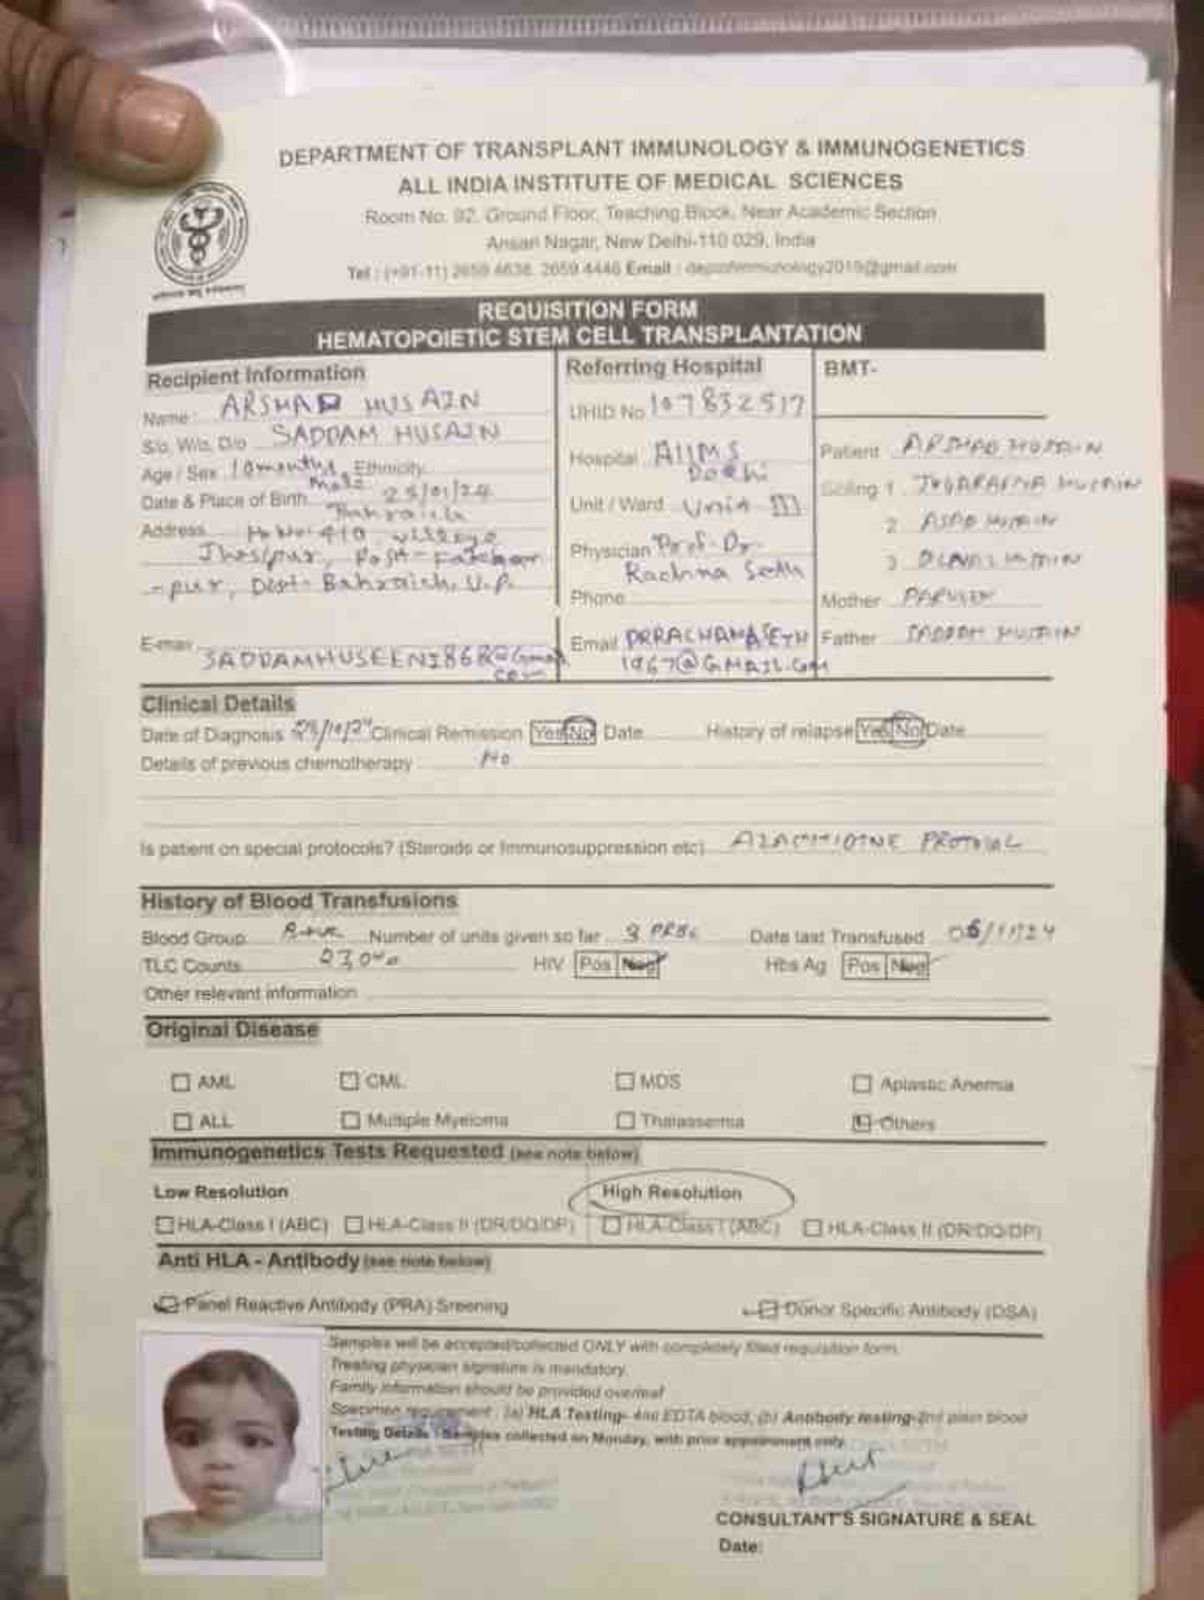 DEPARTMENT OF TRANSPLANT IMMUNOLOGY & IMMUNOGENETICS
ALL INDIA INSTITUTE OF MEDICAL SCIENCES
Room No. 92, Ground Floor, Teaching Block, Near Academic Section
Ansari Nagar, New Delhi-110 029, India
Tel : (+91-11) 2659 4638, 2659 4446 Email :
REQUISITION FORM
HEMATOPOIETIC STEM CELL TRANSPLANTATION
Recipient Information
Name: ARSHAD HUSAIN
S/o, W/o, D/o SADDAM HUSAIN
Age / Sex 10months, Male Ethnicity
Date & Place of Birth 25/01/24
Bahraich
Address H. No. 410, village
Post-
-pur, Dist- Bahraich, U.P.
E-mail SADDAMHUSEEN1868@Gmail.com
Referring Hospital
UHID No 107832517
Hospital AIIMS
Delhi
Unit / Ward Unit III
Physician Prof. Dr.
Rachna Seth
Phone
Email DRRACHANASETH
1967@GMAIL.COM
BMT-
Patient ARSHAD HUSAIN
Sibling 1 HUSAIN
2 ASAD HUSAIN
3 HUSAIN
Mother PARVEEN
Father SADDAM HUSAIN
Clinical Details
Date of Diagnosis Clinical Remission Yes No Date History of relapse Yes No Date
Details of previous chemotherapy No
Is patient on special protocols? (Steroids or Immunosuppression etc) AZACITIDINE PROTOCOL
History of Blood Transfusions
Blood Group B+ve Number of units given so far 3 PRBC Date last Transfused
TLC Counts HIV Pos Neg Hbs Ag Pos Neg
Other relevant information
Original Disease
AML CML MDS Aplastic Anemia
ALL Multiple Myeloma Thalassemia Others
Immunogenetics Tests Requested (see note below)
Low Resolution High Resolution
HLA-Class I (ABC) HLA-Class II (DR/DQ/DP) HLA-Class I (ABC) HLA-Class II (DR/DQ/DP)
Anti HLA - Antibody (see note below)
Panel Reactive Antibody (PRA) Sreening Donor Specific Antibody (DSA)
Samples will be accepted/collected ONLY with completely filled requisition form.
Treating physician signature is mandatory.
Family information should be provided overleaf
Specimen requirement : (a) HLA Testing- 4ml EDTA blood, (b) Antibody testing-2ml plain blood
Testing Details : Samples collected on Monday, with prior appointment only.
CONSULTANT'S SIGNATURE & SEAL
Date: